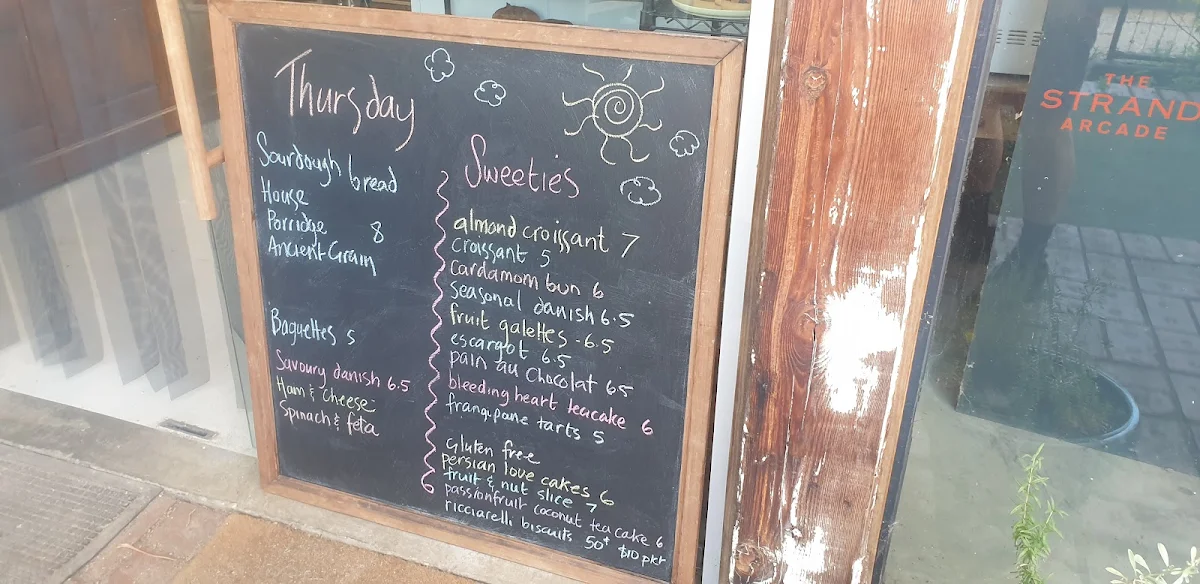 Thursday
Sourdough bread
House
Porridge 8
Ancient Grain
Baguettes 5
Savoury danish 6.5
Ham & Cheese
Spinach & feta
Sweeties
almond croissant 7
croissant 5
cardamom bun 6
seasonal danish 6.5
fruit galettes - 6.5
escargot 6.5
pain au Chocolat 6.5
bleeding heart teacake 6
frangipane tarts 5
gluten free
persian love cakes 6
fruit & nut slice 7
passionfruit coconut tea cake 6
ricciarelli biscuits 50¢ $10 pkt
THE
STRAND
ARCADE